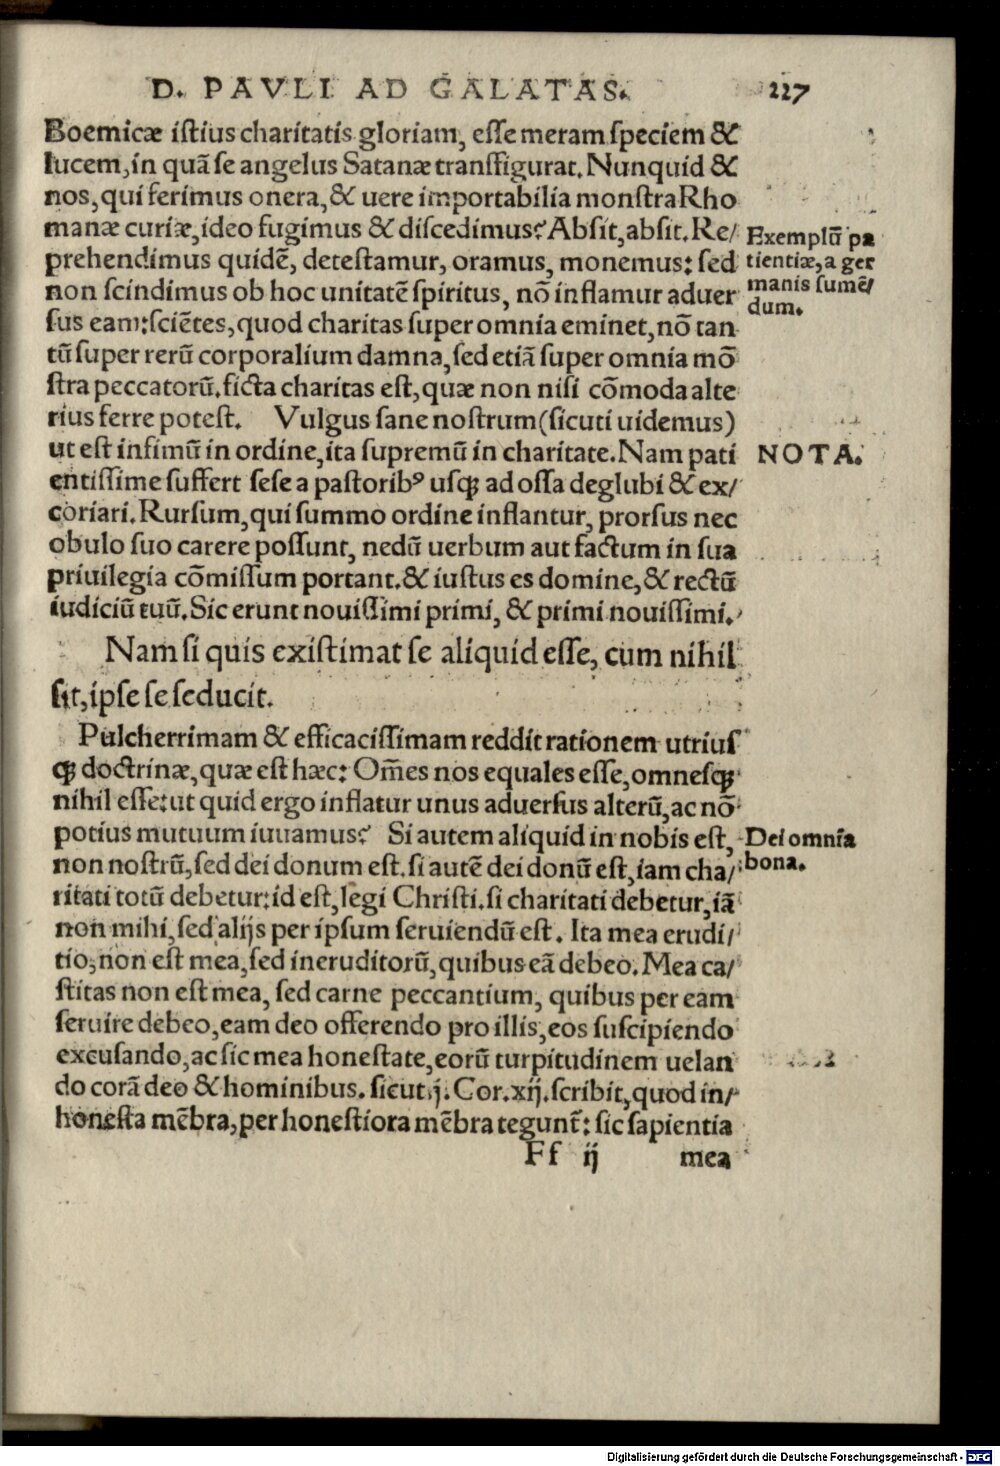 D. PAVLI AD GALATAS. 227
Boemicæ iſtius charitatis gloriam, eſſe meram ſpeciem &
lucem, in quã ſe angelus Satanæ tranſfigurat. Nunquid &
nos, qui ferimus onera, & uere importabilia monſtra Rho
manæ curiæ, ideo fugimus & diſcedimus? Abſit, abſit. Re/
prehendimus quidẽ, deteſtamur, oramus, monemus: ſed
non ſcindimus ob hoc unitatẽ ſpiritus, nõ inflamur aduer
ſus eam: ſciẽtes, quod charitas ſuper omnia eminet, nõ tan
tũ ſuper rerũ corporalium damna, ſed etiã ſuper omnia mõ
ſtra peccatorũ. ficta charitas eſt, quæ non niſi cõmoda alte
rius ferre poteſt. Vulgus ſane noſtrum (ſicuti uidemus)
ut eſt infimũ in ordine, ita ſupremũ in charitate. Nam pati
entiſſime ſuffert ſeſe a paſtoribꝰ uſqꝫ ad oſſa deglubi & ex/
coriari. Rurſum, qui ſummo ordine inflantur, prorſus nec
obulo ſuo carere poſſunt, nedũ uerbum aut factum in ſua
priuilegia cõmiſſum portant. & iuſtus es domine, & rectũ
iudiciũ tuũ. Sic erunt nouiſſimi primi, & primi nouiſſimi.
Exemplũ pa
tientiæ, a ger
manis ſumẽ/
dum.
NOTA.
Nam ſi quis exiſtimat ſe aliquid eſſe, cum nihil
ſit, ipſe ſe ſeducit.
Pulcherrimam & efficaciſſimam reddit rationem utriuſ
qꝫ doctrinæ, quæ eſt hæc: Om̃es nos equales eſſe, omneſqꝫ
nihil eſſe: ut quid ergo inflatur unus aduerſus alterũ, ac nõ
potius mutuum iuuamus? Si autem aliquid in nobis eſt,
non noſtrũ, ſed dei donum eſt. ſi autẽ dei donũ eſt, iam cha/
ritati totũ debetur: id eſt, legi Chriſti. ſi charitati debetur, iã
non mihi, ſed alijs per ipſum ſeruiendũ eſt. Ita mea erudi/
tio, non eſt mea, ſed ineruditorũ, quibus eã debeo. Mea ca/
ſtitas non eſt mea, ſed carne peccantium, quibus per eam
ſeruire debeo, eam deo offerendo pro illis, eos ſuſcipiendo
excuſando, ac ſic mea honeſtate, eorũ turpitudinem uelan
do corã deo & hominibus. ſicut j. Cor. xij. ſcribit, quod in/
honeſta mẽbra, per honeſtiora mẽbra tegunt̃: ſic ſapientia
Dei omnia
bona.
Ff ij mea
Digitalisierung gefördert durch die Deutsche Forschungsgemeinschaft - DFG